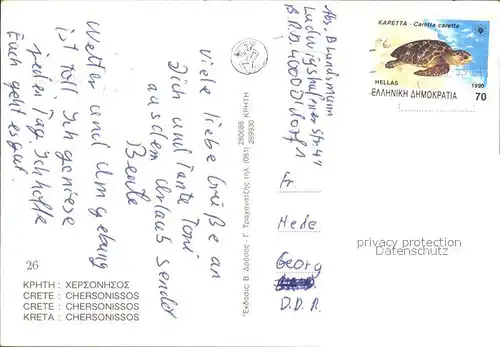 Viele liebe Grüße an
Dich und Tante Toni
aus dem Urlaub sendet
Beate
Wetter und Umgebung
ist toll Ich geniese
jeden Tag. Ich hoffe
Euch geht es gut.
26
ΚΡΗΤΗ : ΧΕΡΣΟΝΗΣΟΣ
CRETE : CHERSONISSOS
CRETE : CHERSONISSOS
KRETA : CHERSONISSOS
Έκδοσις: Β. Δρόσος - Γ. Τραχανατζής τηλ. (081) 280686 289930 ΚΡΗΤΗ
Abs. B Lundsmann
Ludwigshafener Str. 41
ΚΑΡΕΤΤΑ - Caretta caretta
HELLAS
1990
ΕΛΛΗΝΙΚΗ ΔΗΜΟΚΡΑΤΙΑ
70
Fr.
Hede
Georg
D.D.R.
privacy protection
Datenschutz